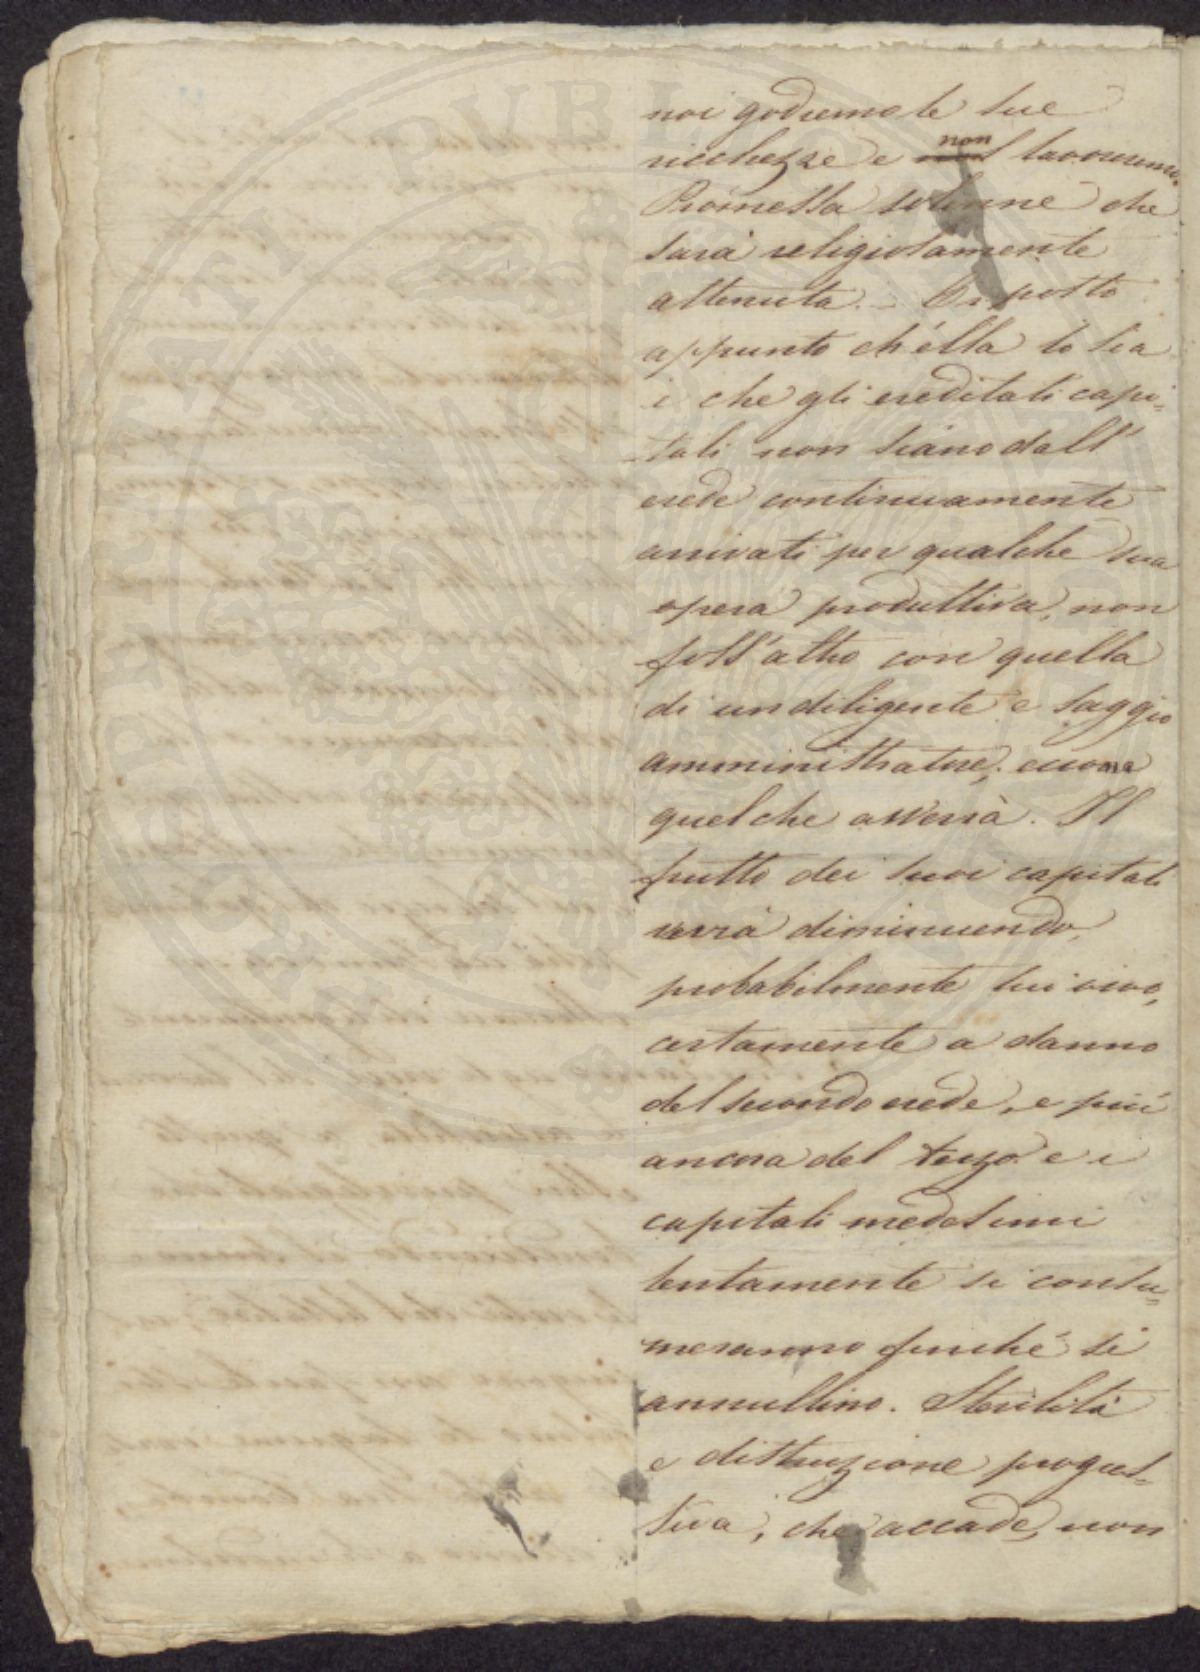 noi godremo le sue
ricchezze e non lavoreremo.
Promessa solenne che
sarà religiosamente
attenuta. – Or posto
appunto ch'élla lo sia
e che gli ereditati capi-
tali non siano dall'
erede continuamente
avvivati per qualche sua
opera produttiva, non
foss'altro con quella
di un diligente e saggio
amministratore; eccone
quel che avverrà. Il
frutto dei suoi capitali
verrà diminuendo,
probabilmente lui vivo,
certamente a danno
del secondo erede, e più
ancora del terzo e i
capitali medesimi
lentamente si consu-
meranno finché si
annullino. Sterilità
e distruzione progres-
siva, che accade, non